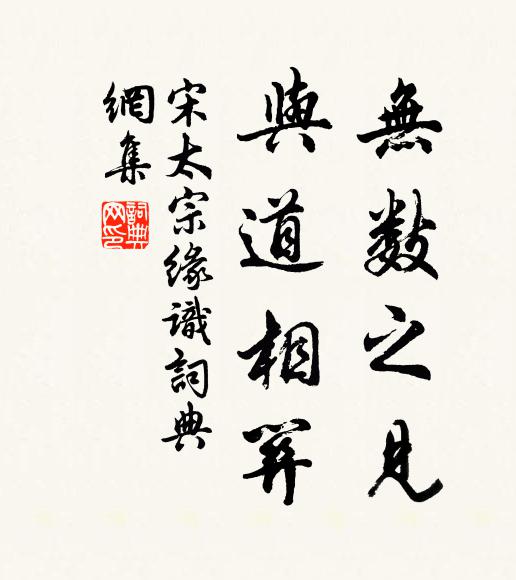 無數之見
與道相
宋太宗緣識詞典
網集
詞典
网印